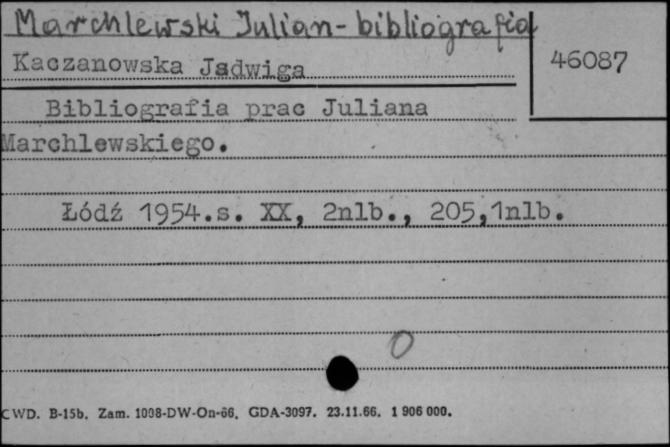 Marchlewski Julian - bibliografia
Kaczanowska Jadwiga
46087
Bibliografia prac Juliana
Marchlewskiego.
Łódź 1954.s. XX, 2nlb., 205,1nlb.
0
CWD. B-15b. Zam. 1098-DW-On-66. GDA-3097. 23.11.66. 1 906 000.